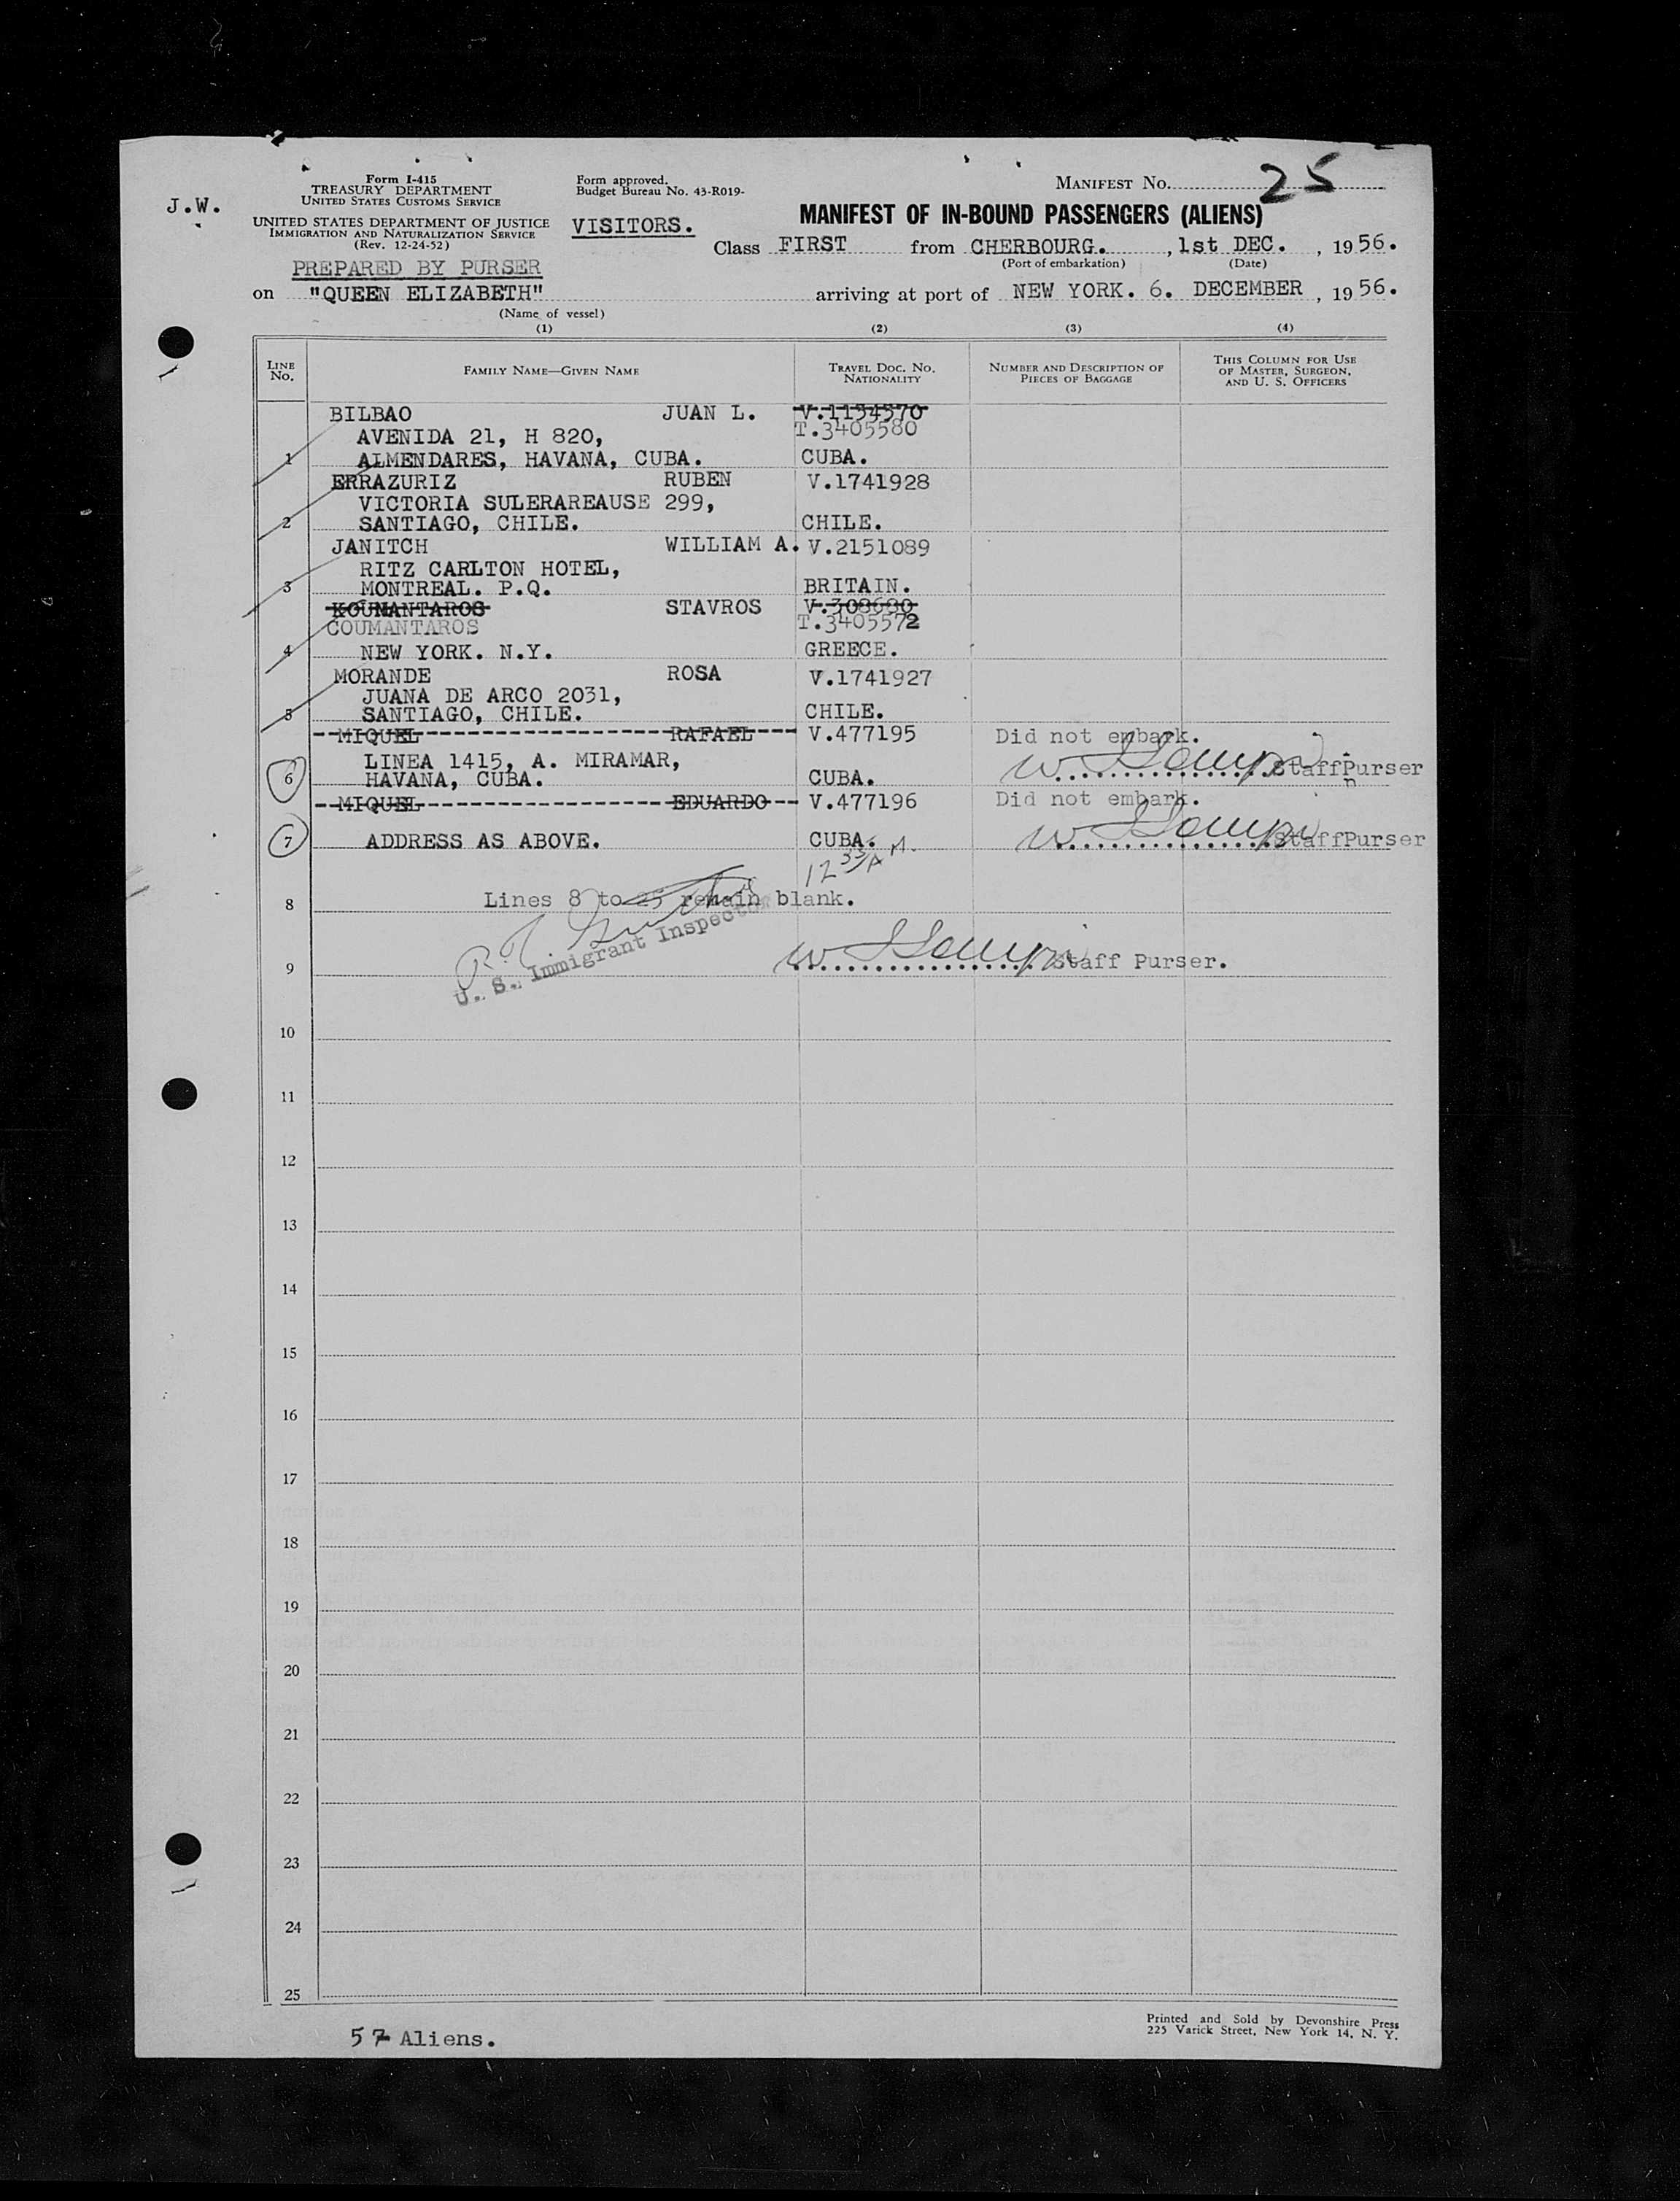 J.W.
Form I-415
TREASURY DEPARTMENT
UNITED STATES CUSTOMS SERVICE
UNITED STATES DEPARTMENT OF JUSTICE
IMMIGRATION AND NATURALIZATION SERVICE
(Rev. 12-24-52)
PREPARED BY PURSER
Form approved.
Budget Bureau No. 43-R019-
VISITORS.
MANIFEST NO. 25
MANIFEST OF IN-BOUND PASSENGERS (ALIENS)
Class FIRST from CHERBOURG. , 1st DEC. , 1956.
(Port of embarkation) (Date)
on "QUEEN ELIZABETH" arriving at port of NEW YORK. 6. DECEMBER , 1956.
(Name of vessel)
(1) (2) (3) (4)
LINE NO. FAMILY NAME—GIVEN NAME TRAVEL DOC. NO. NATIONALITY NUMBER AND DESCRIPTION OF PIECES OF BAGGAGE THIS COLUMN FOR USE OF MASTER, SURGEON, AND U. S. OFFICERS
BILBAO JUAN L.
AVENIDA 21, H 820, T.3405580
1 ALMENDARES, HAVANA, CUBA. CUBA.
ERRAZURIZ RUBEN V.1741928
VICTORIA SULERAREAUSE 299,
2 SANTIAGO, CHILE. CHILE.
JANITCH WILLIAM A. V.2151089
RITZ CARLTON HOTEL,
3 MONTREAL. P.Q. BRITAIN.
KOUMANTAROS STAVROS V.308680
COUMANTAROS T.3405572
4 NEW YORK. N.Y. GREECE.
MORANDE ROSA V.1741927
JUANA DE ARCO 2031,
5 SANTIAGO, CHILE. CHILE.
MIQUEL RAFAEL V.477195 Did not embark.
LINEA 1415, A. MIRAMAR,
6 HAVANA, CUBA. CUBA. Staff Purser
MIQUEL EDUARDO V.477196 Did not embark.
7 ADDRESS AS ABOVE. CUBA. StaffPurser
12 35 A M.
8 Lines 8 to 25 remain blank.
U. S. Immigrant Inspector
9 Staff Purser.
10
11
12
13
14
15
16
17
18
19
20
21
22
23
24
25
57 Aliens.
Printed and Sold by Devonshire Press
225 Varick Street, New York 14, N. Y.